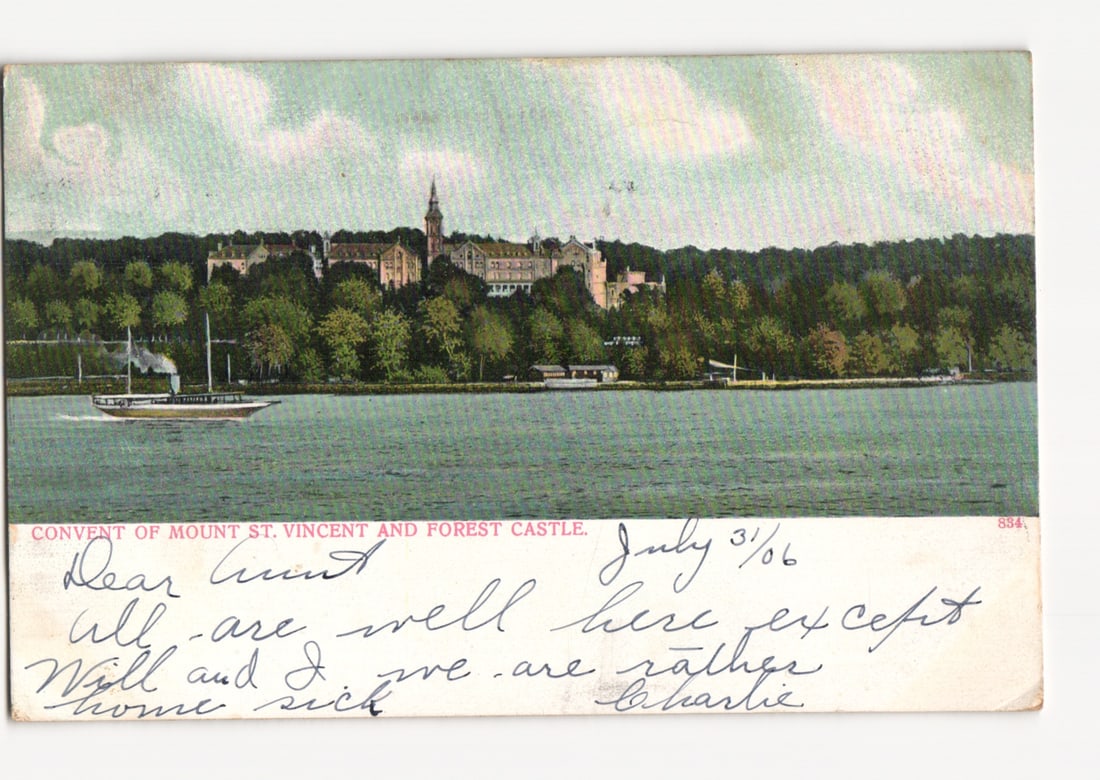 CONVENT OF MOUNT ST. VINCENT AND FOREST CASTLE.
834.
July 31/06
Dear Aunt
All are well here except
Will and I. we are rather
home sick
Charlie